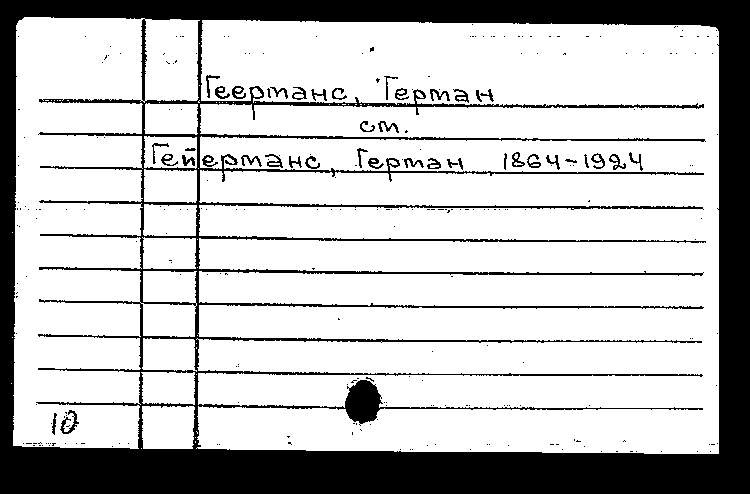 Геерманс, Герман
ст.
Гейерманс, Герман 1864-1924
10